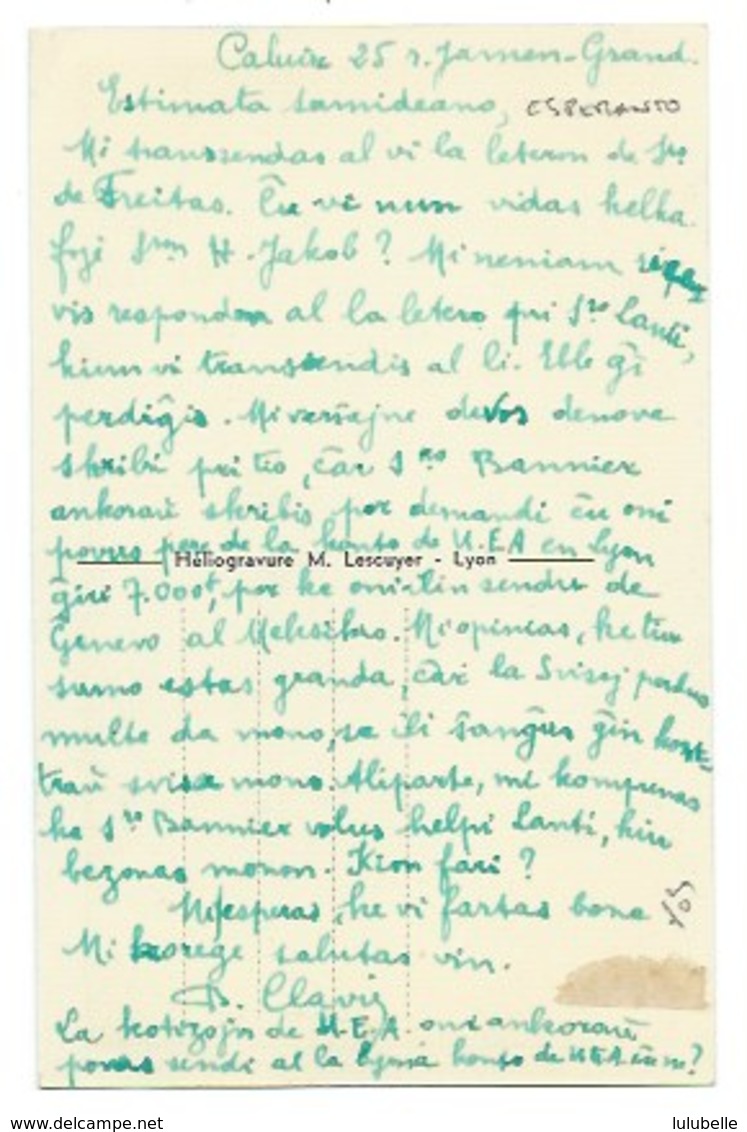 Caluire 25 r. Jamen-Grand.
Estimata samideano, ESPERANTO
Mi transsendas al vi la leteron de Sro
de Freitas. Ĉu vi nun vidas kelka
foje Sron H. Jakob? Mi neniam rice
vis respondon al la letero pri Sro Lanti,
kiun vi transsendis al li. Eble ĝi
perdiĝis. Mi verŝajne devos denove
skribi pri tio, ĉar Sro Bannier
ankoraŭ skribis por demandi ĉu oni
povus pere de la konto de U.E.A en Lyon
Héliogravure M. Lescuyer - Lyon
ĝiri 7.000f, por ke oni ilin sendu de
Ĝenevo al Meksiko. Mi opinias, ke tiu
sumo estas granda, ĉar la Svisoj perdus
multe da mono, se ili ŝanĝus ĝin kont-
traŭ svisa mono. Aliparte, mi komprenas
ke Sro Bannier volus helpi Lanti, kiu
bezonas monon. Kion fari?
Mi esperas, ke vi fartas bone
Mi korege salutas vin.
B. Clavig
La kotizojn de U.E.A. oni ankoraŭ
povas sendi al la Lyona konto de UEA ĉu ne?
lulubelle
www.delcampe.net